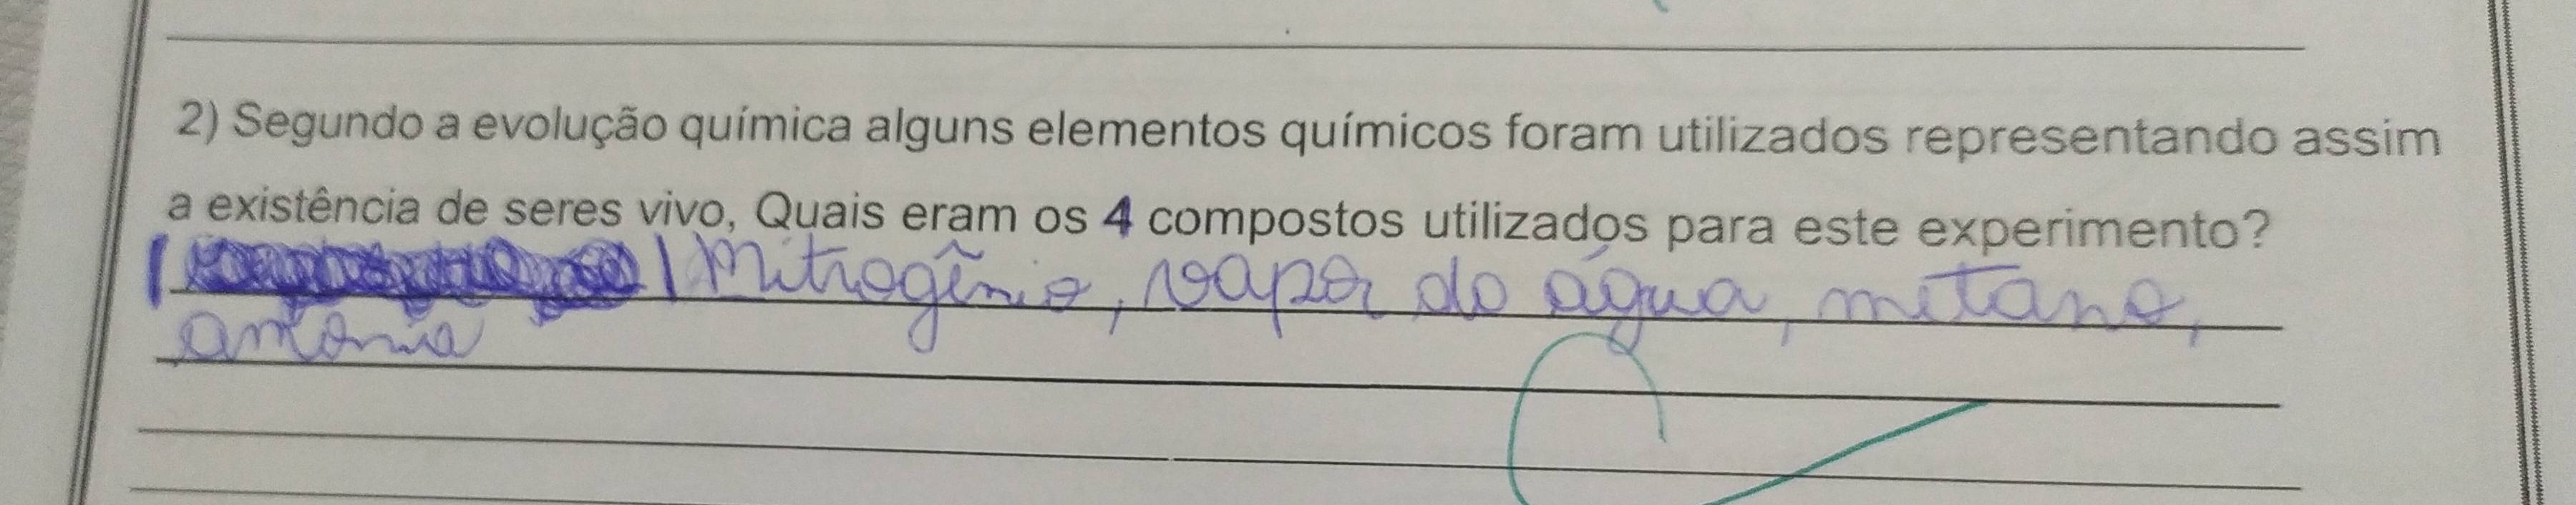 2) Segundo a evolução química alguns elementos químicos foram utilizados representando assim
a existência de seres vivo, Quais eram os 4 compostos utilizados para este experimento?
Nitrogênio, vapor do água, metano,
amônia